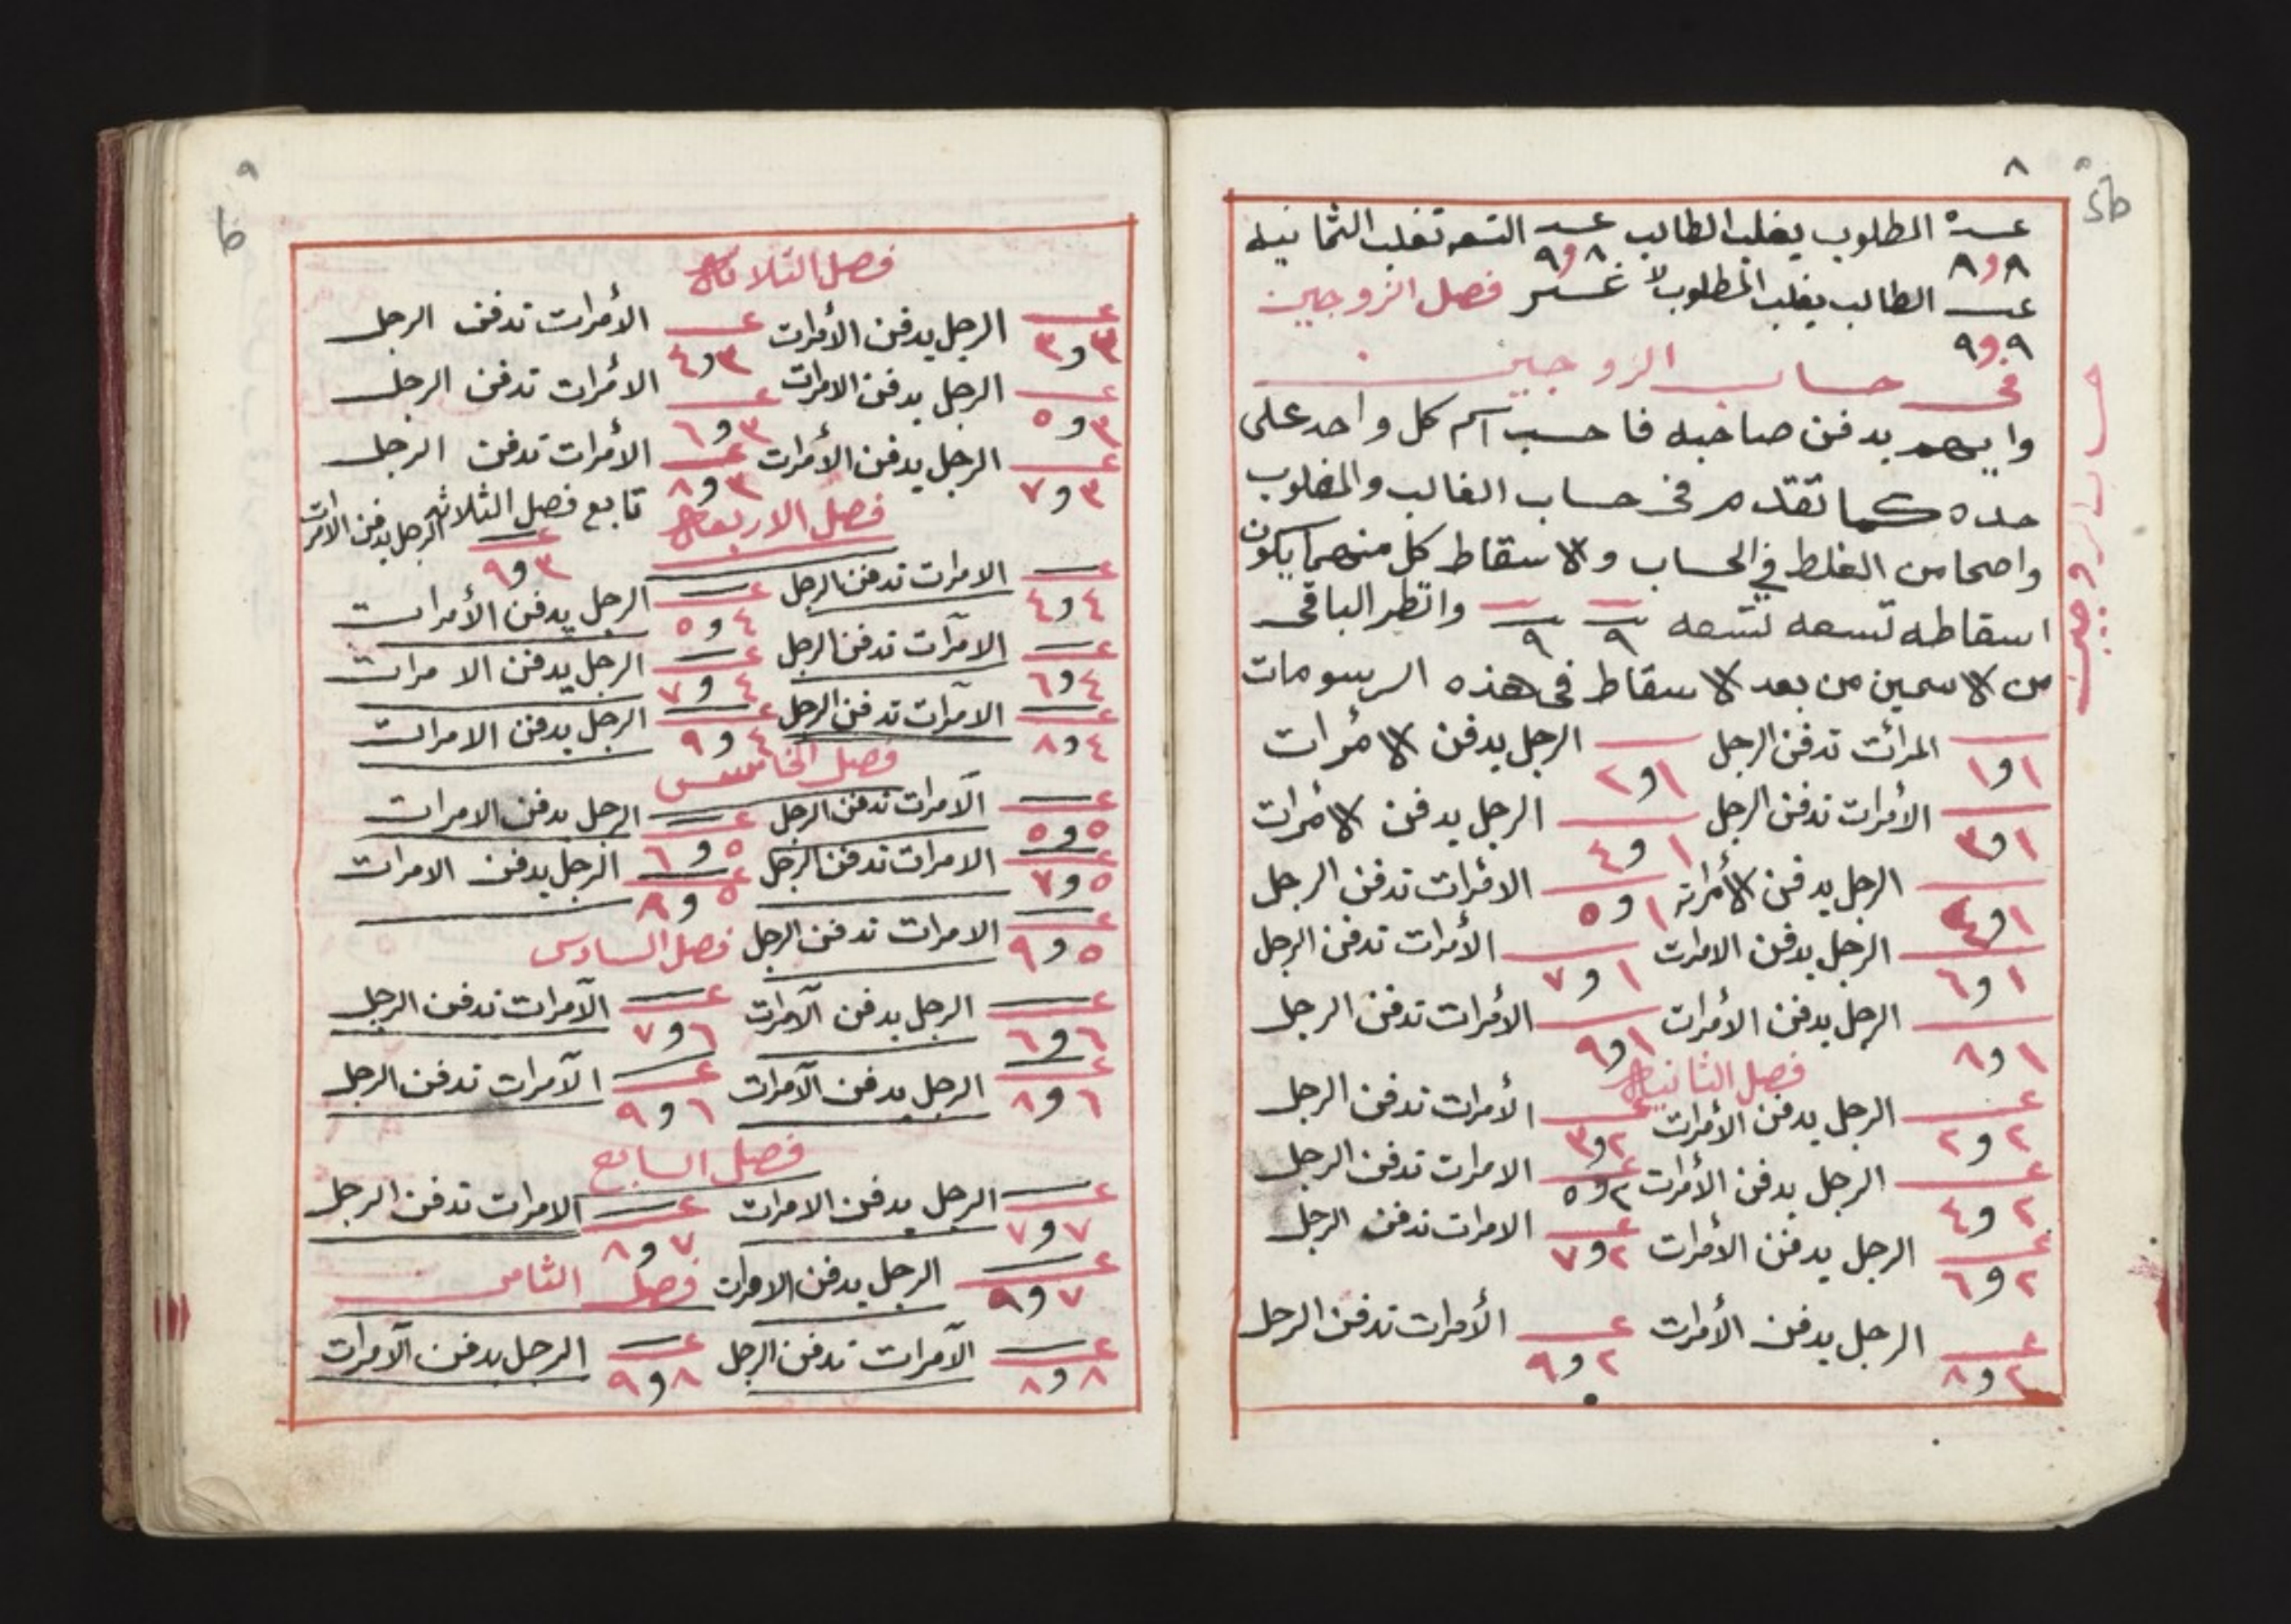 ٨
عدد المطلوب يغلب الطالب عدد التسعه تغلب الثمانيه
٨ و ٨ ٨ و ٩
عدد الطالب يغلب المطلوب لا غير فصل الزوجين
٩ و ٩
في حساب الزوجين
حساب الزوجين
وايهم يدفن صاحبه فاحسب اسم كل واحد على
حده كما تقدم في حساب الغالب والمغلوب
واصحا من الغلط في الحساب والاسقاط كل منهما يكون
اسقاطه تسعه تسعه ٩ ٩ وانظر الباقي
من الاسمين من بعد الاسقاط في هذه الرسومات
١ و ١ المرائت تدفن الرجل ١ و ٢ الرجل يدفن الأمرات
١ و ٣ الأمرات تدفن الرجل ١ و ٤ الرجل يدفن الأمرات
١ و ٤ الرجل يدفن الأمراته ١ و ٥ الأمرات تدفن الرجل
١ و ٦ الرجل يدفن الامرات ١ و ٧ الأمرات تدفن الرجل
١ و ٨ الرجل يدفن الأمرات ١ و ٩ الأمرات تدفن الرجل
فصل الثانيه
٢ و ٢ الرجل يدفن الأمرات ٢ و ٣ الأمرات تدفن الرجل
٢ و ٤ الرجل يدفن الأمرات ٢ و ٥ الامرات تدفن الرجل
٢ و ٦ الرجل يدفن الأمرات ٢ و ٧ الامرات تدفن الرجل
٢ و ٨ الرجل يدفن الأمرات ٢ و ٩ الأمرات تدفن الرجل
٩
فصل الثلاثه
٣ و ٣ الرجل يدفن الأمرات ٣ و ٤ الأمرات تدفن الرجل
٣ و ٥ الرجل يدفن الامرات ٣ و ٦ الأمرات تدفن الرجل
٣ و ٧ الرجل يدفن الأمرات ٣ و ٨ الأمرات تدفن الرجل
فصل الاربعه تابع فصل الثلاثه ٣ و ٩ الرجل يدفن الامرات
٤ و ٤ الامرات تدفن الرجل ٤ و ٥ الرجل يدفن الأمرات
٤ و ٦ الآمرات تدفن الرجل ٤ و ٧ الرجل يدفن الامرات
٤ و ٨ الآمرات تدفن الرجل ٤ و ٩ الرجل يدفن الامرات
فصل الخامس
٥ و ٥ الآمرات تدفن الرجل ٥ و ٦ الرجل يدفن الامرات
٥ و ٧ الامرات تدفن الرجل ٥ و ٨ الرجل يدفن الامرات
٥ و ٩ الامرات تدفن الرجل فصل السادس
٦ و ٦ الرجل يدفن الآمرات ٦ و ٧ الآمرات تدفن الرجل
٦ و ٨ الرجل يدفن الآمرات ٦ و ٩ الآمرات تدفن الرجل
فصل السابع
٧ و ٧ الرجل يدفن الامرات ٧ و ٨ الامرات تدفن الرجل
٧ و ٩ الرجل يدفن الامرات فصل الثامن
٨ و ٨ الآمرات تدفن الرجل ٨ و ٩ الرجل يدفن الآمرات